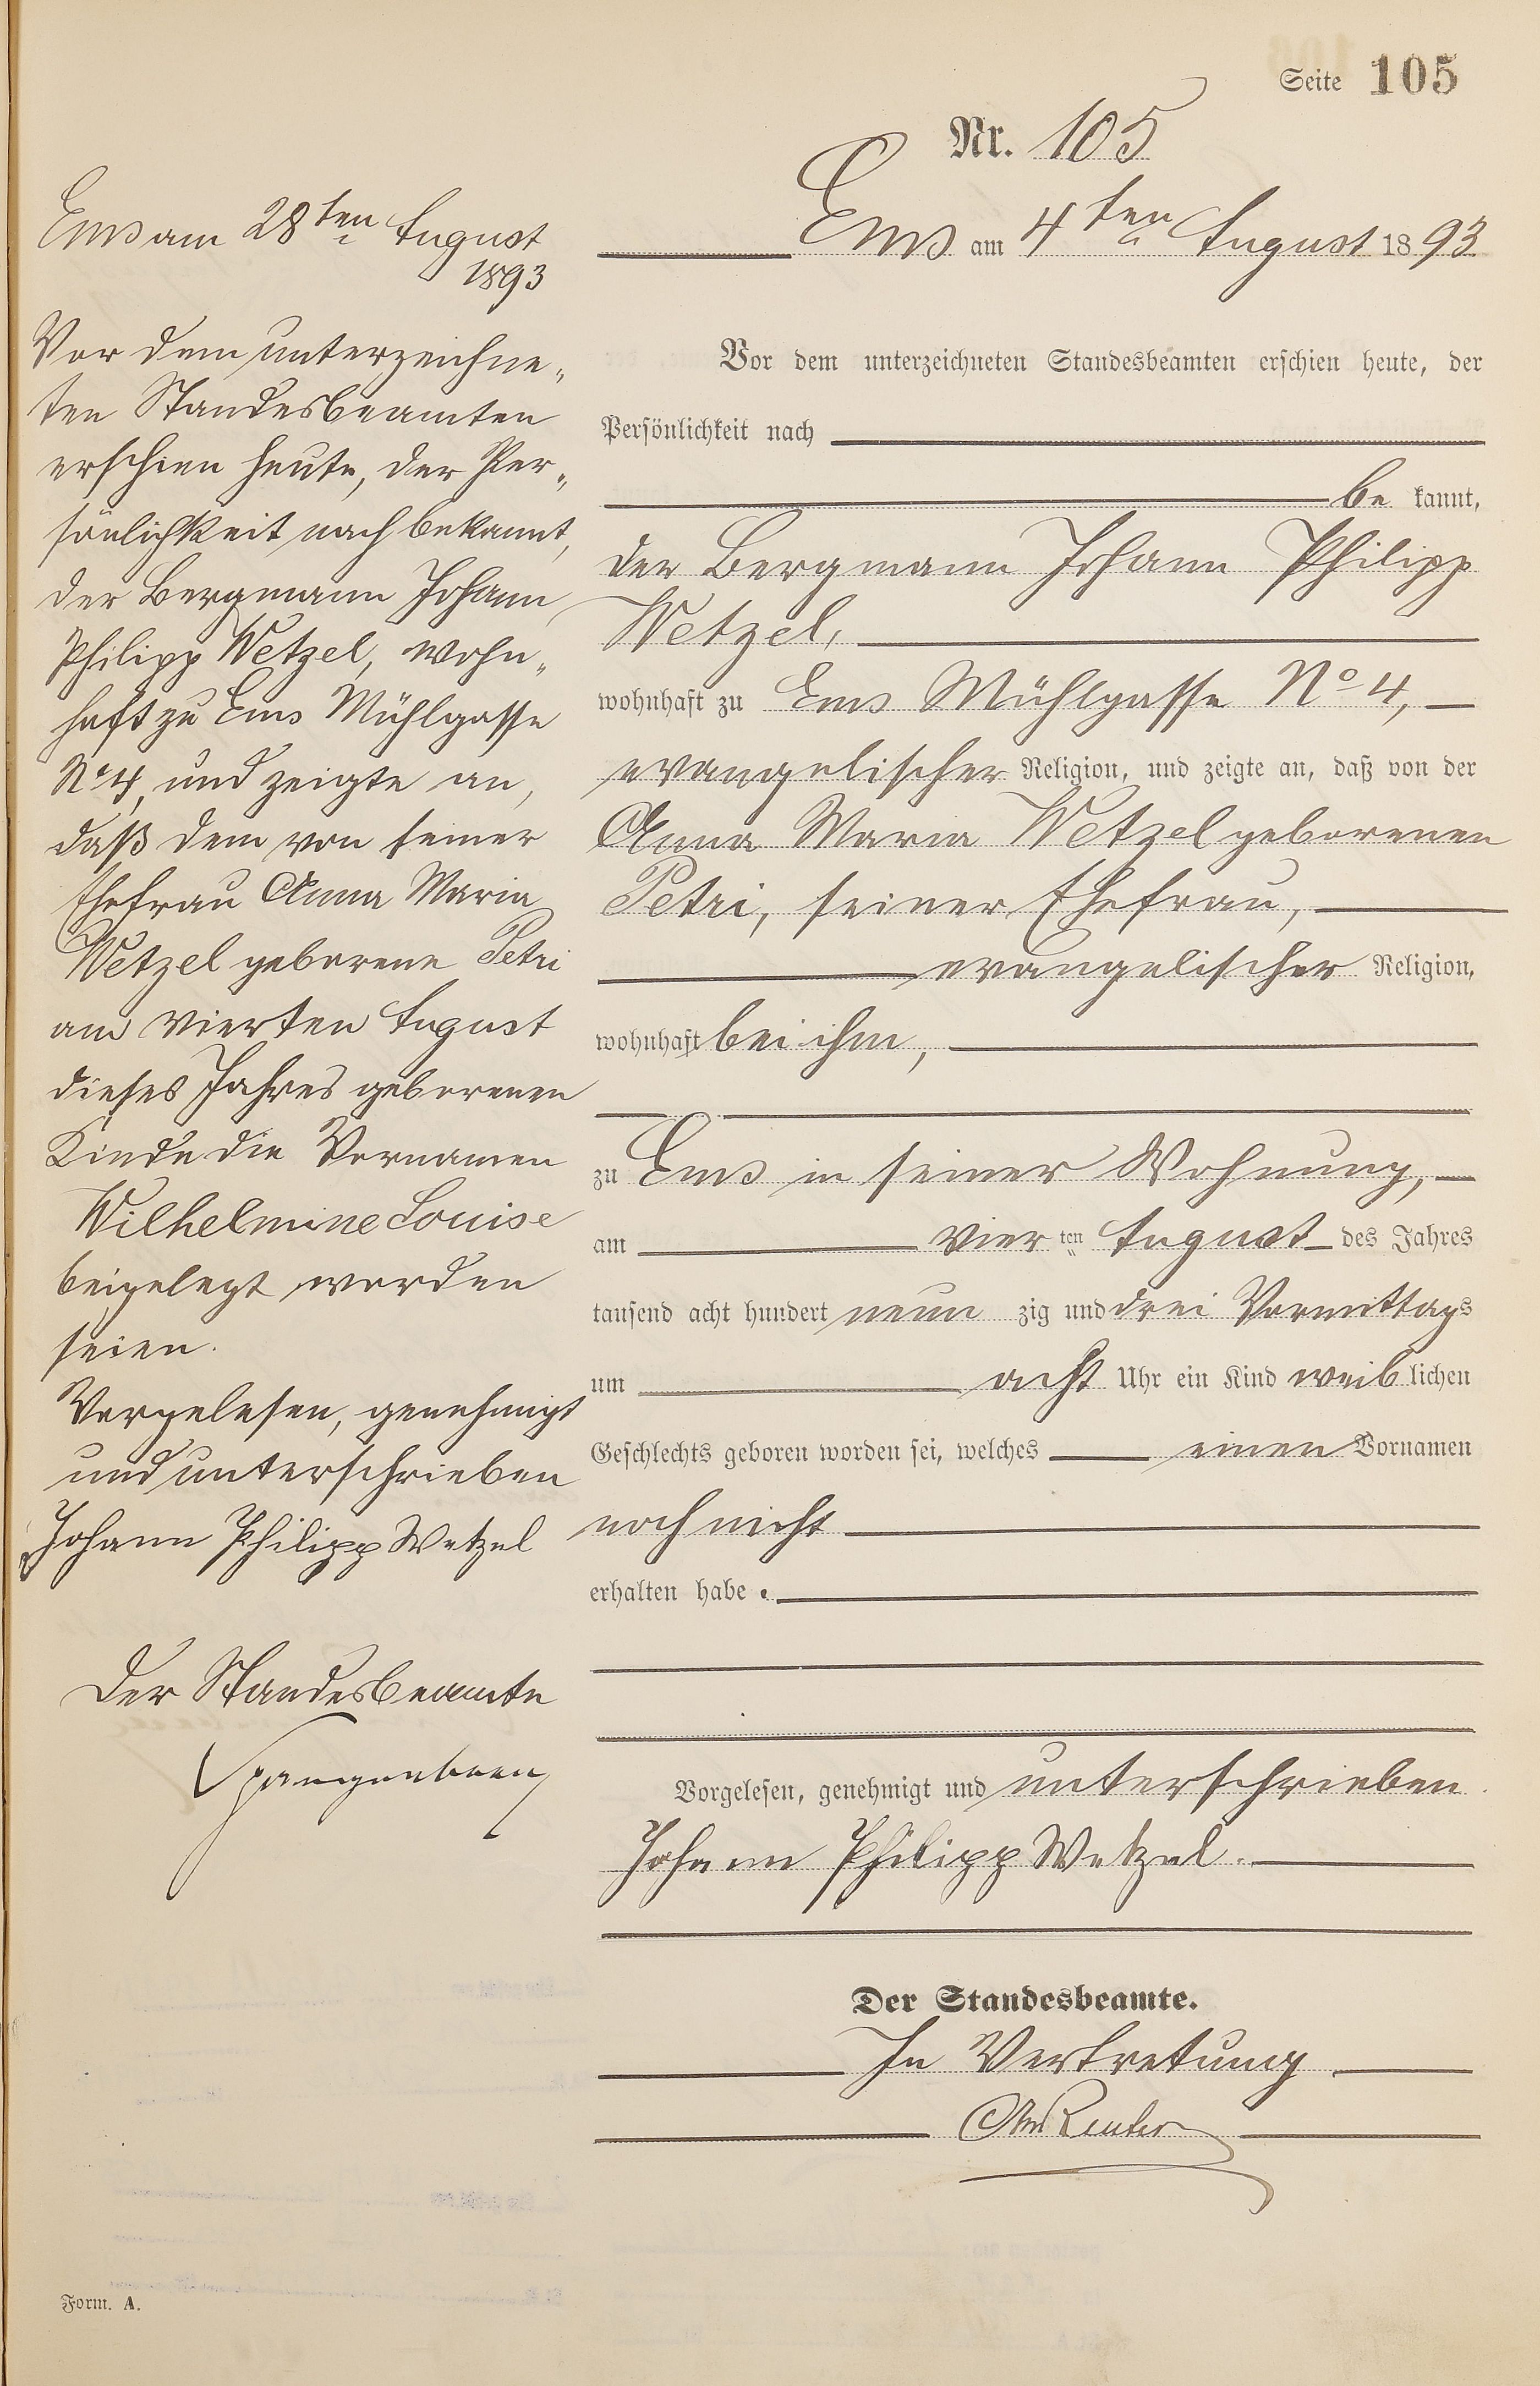 Seite 105
Nr. 105
Ems am 4ten August 1893
Vor dem unterzeichneten Standesbeamten erschien heute, der
Persönlichkeit nach
be kannt,
der Bergmann Johann Philipp
Wetzel,
wohnhaft zu Ems Mühlgasse No 4,
evangelischer Religion, und zeigte an, daß von der
Anna Maria Wetzel geborenen
Petri, seiner Ehefrau,
evangelischer Religion,
wohnhaft bei ihm,
zu Ems in seiner Wohnung,
am vier ten August des Jahres
tausend acht hundert neun zig und drei Vormittags
um acht Uhr ein Kind weib lichen
Geschlechts geboren worden sei, welches einen Vornamen
noch nicht
erhalten habe.
Vorgelesen, genehmigt und unterschrieben
Johann Philipp Wetzel.
Der Standesbeamte.
In Vertretung
Reuter
Ems am 28ten August
1893
Vor dem unterzeichne„
ten Standesbeamten
erschien heute, der Per„
sönlichkeit nach bekannt,
der Bergmann Johann
Philipp Wetzel, wohn„
haft zu Ems Mühlgasse
No 4, und zeigte an,
daß dem von seiner
Ehefrau Anna Maria
Wetzel geborene Petri
am vierten August
dieses Jahres geborenen
Kinde die Vornamen
Wilhelmine Louise
beigelegt worden
seien.
Vorgelesen, genehmigt
und unterschrieben
Johann Philipp Wetzel
Der Standesbeamte
Spangenberg
Form. A.